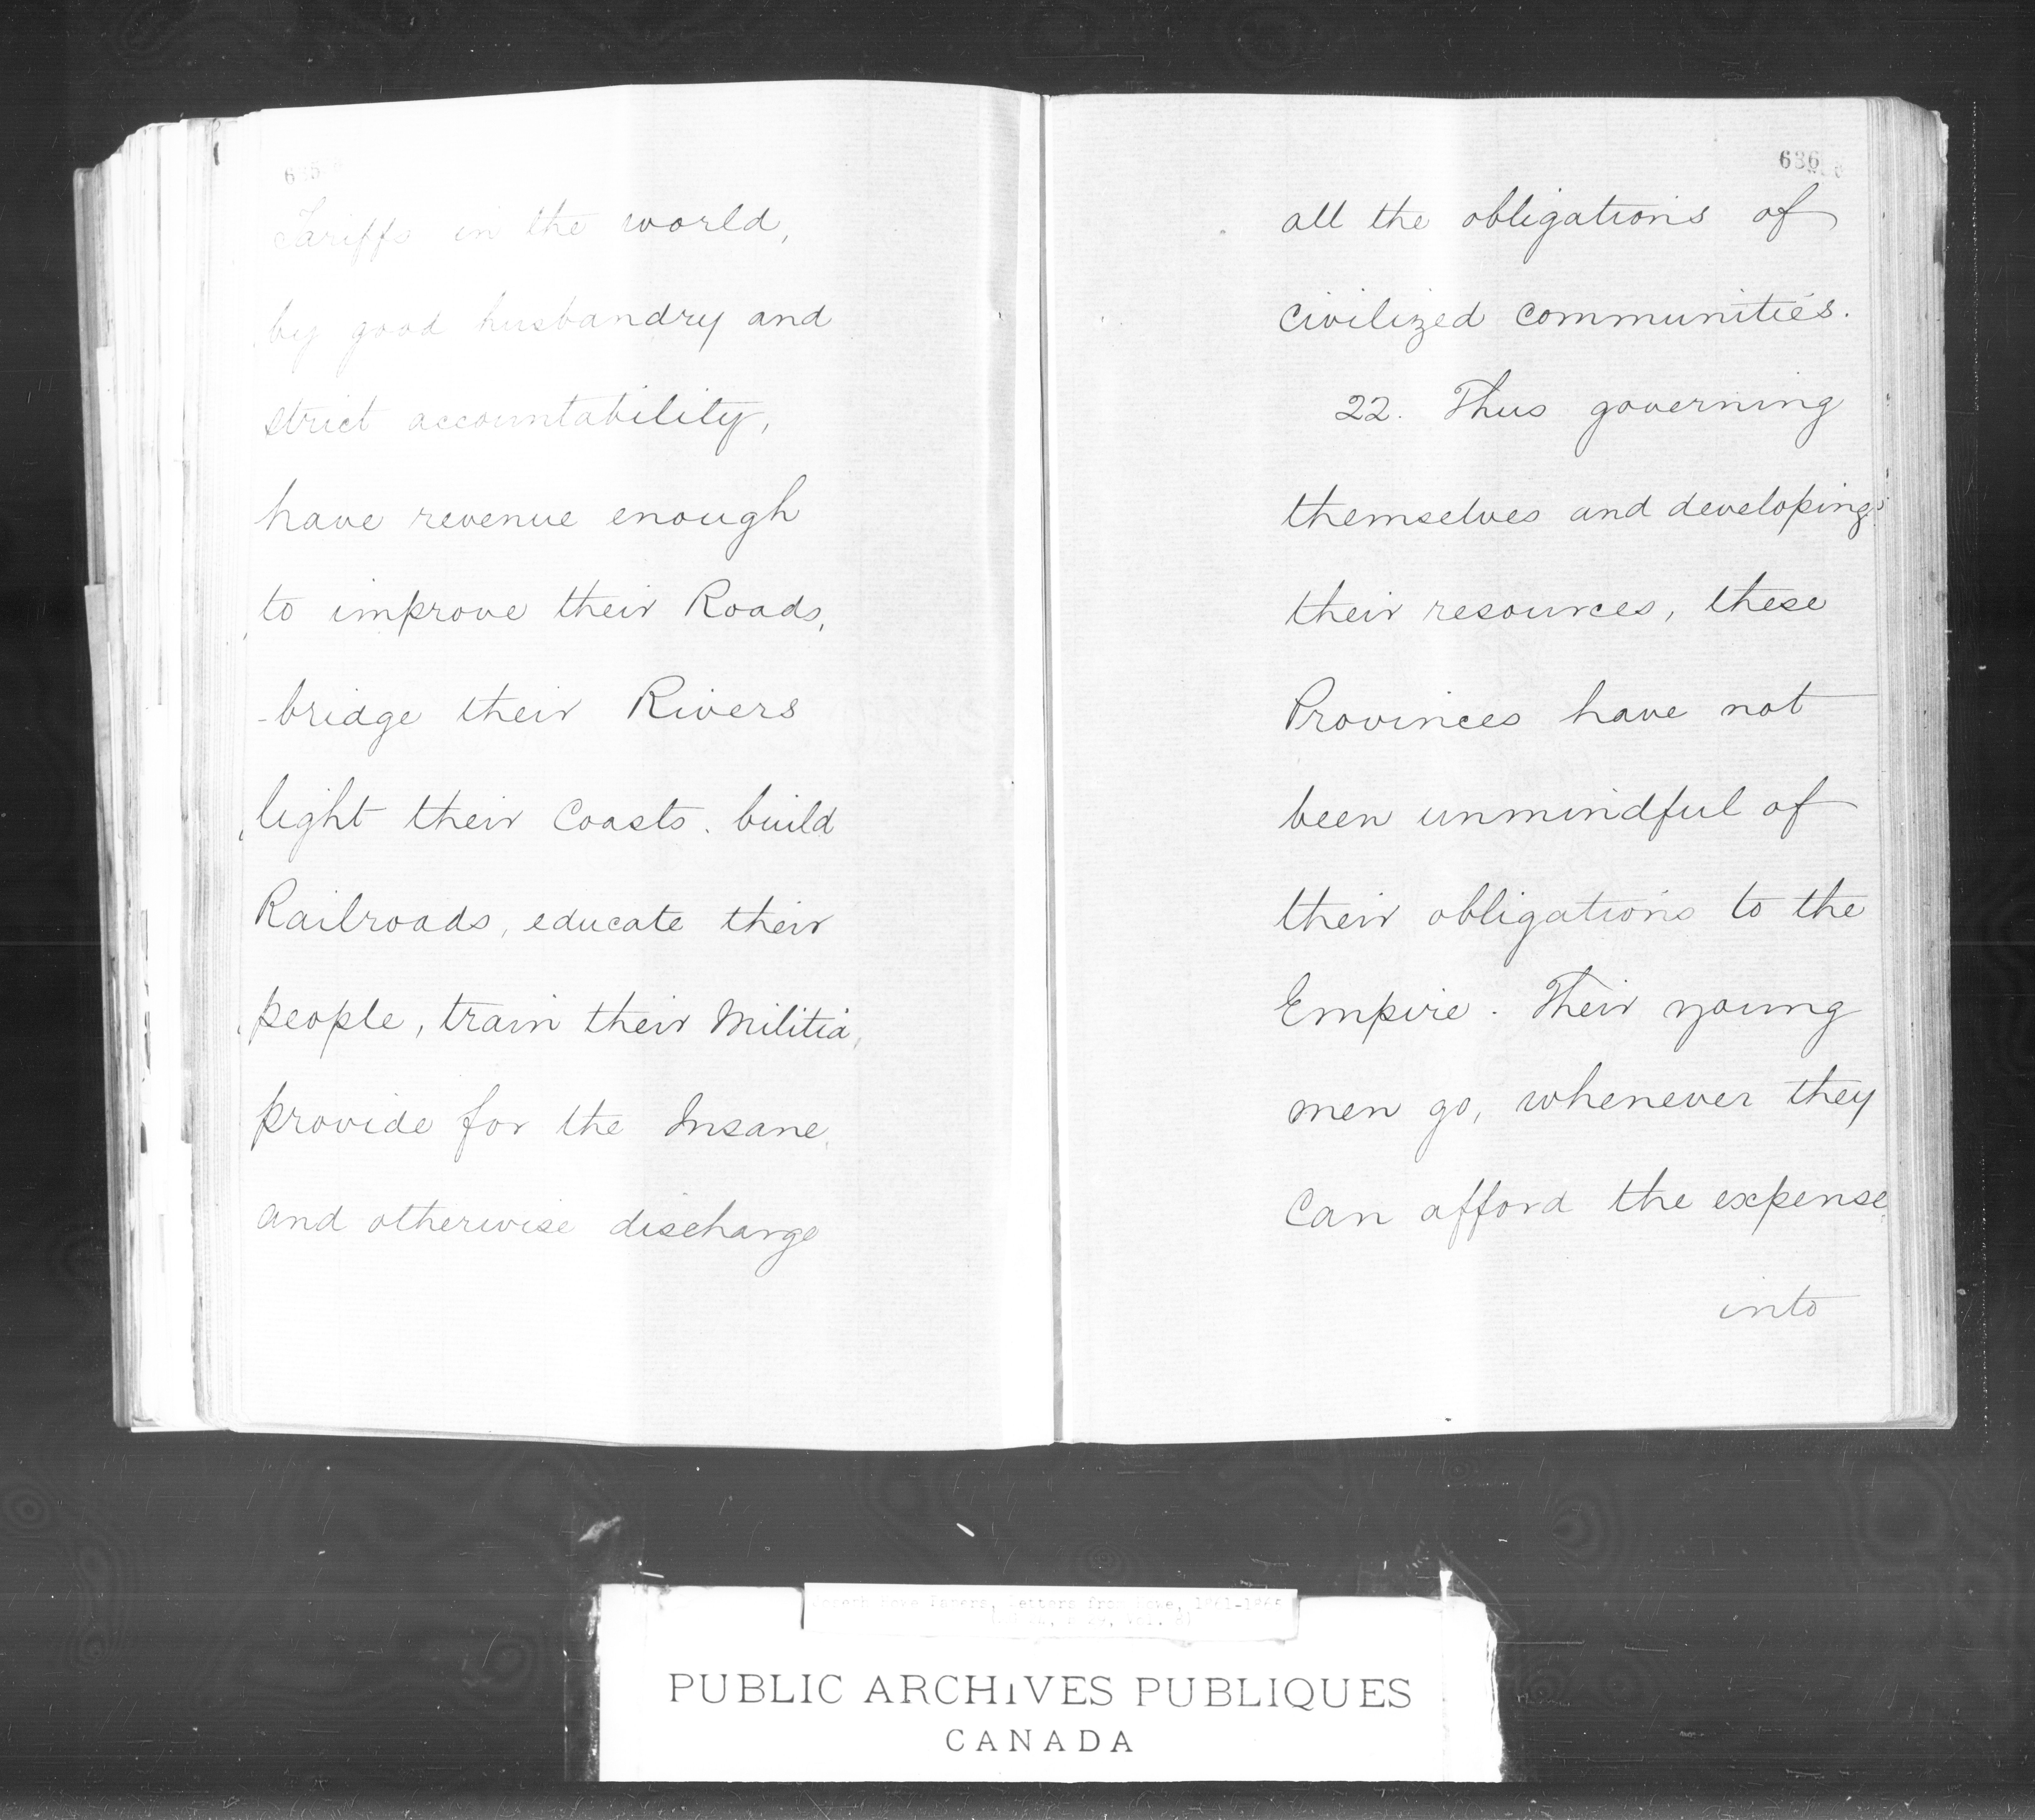 635
Tariffs in the world,
by good husbandry and
strict accountability,
have revenue enough
to improve their Roads,
bridge their Rivers
light their Coasts. build
Railroads, educate their
people, train their Militia,
provide for the Insane,
and otherwise discharge
636
all the obligations of
civilized communities.
22. Thus governing
themselves and developing
their resources, these
Provinces have not
been unmindful of
their obligations to the
Empire. Their young
men go, whenever they
can afford the expense
into
Papers, Letters from Howe,
PUBLIC ARCHIVES PUBLIQUES
CANADA